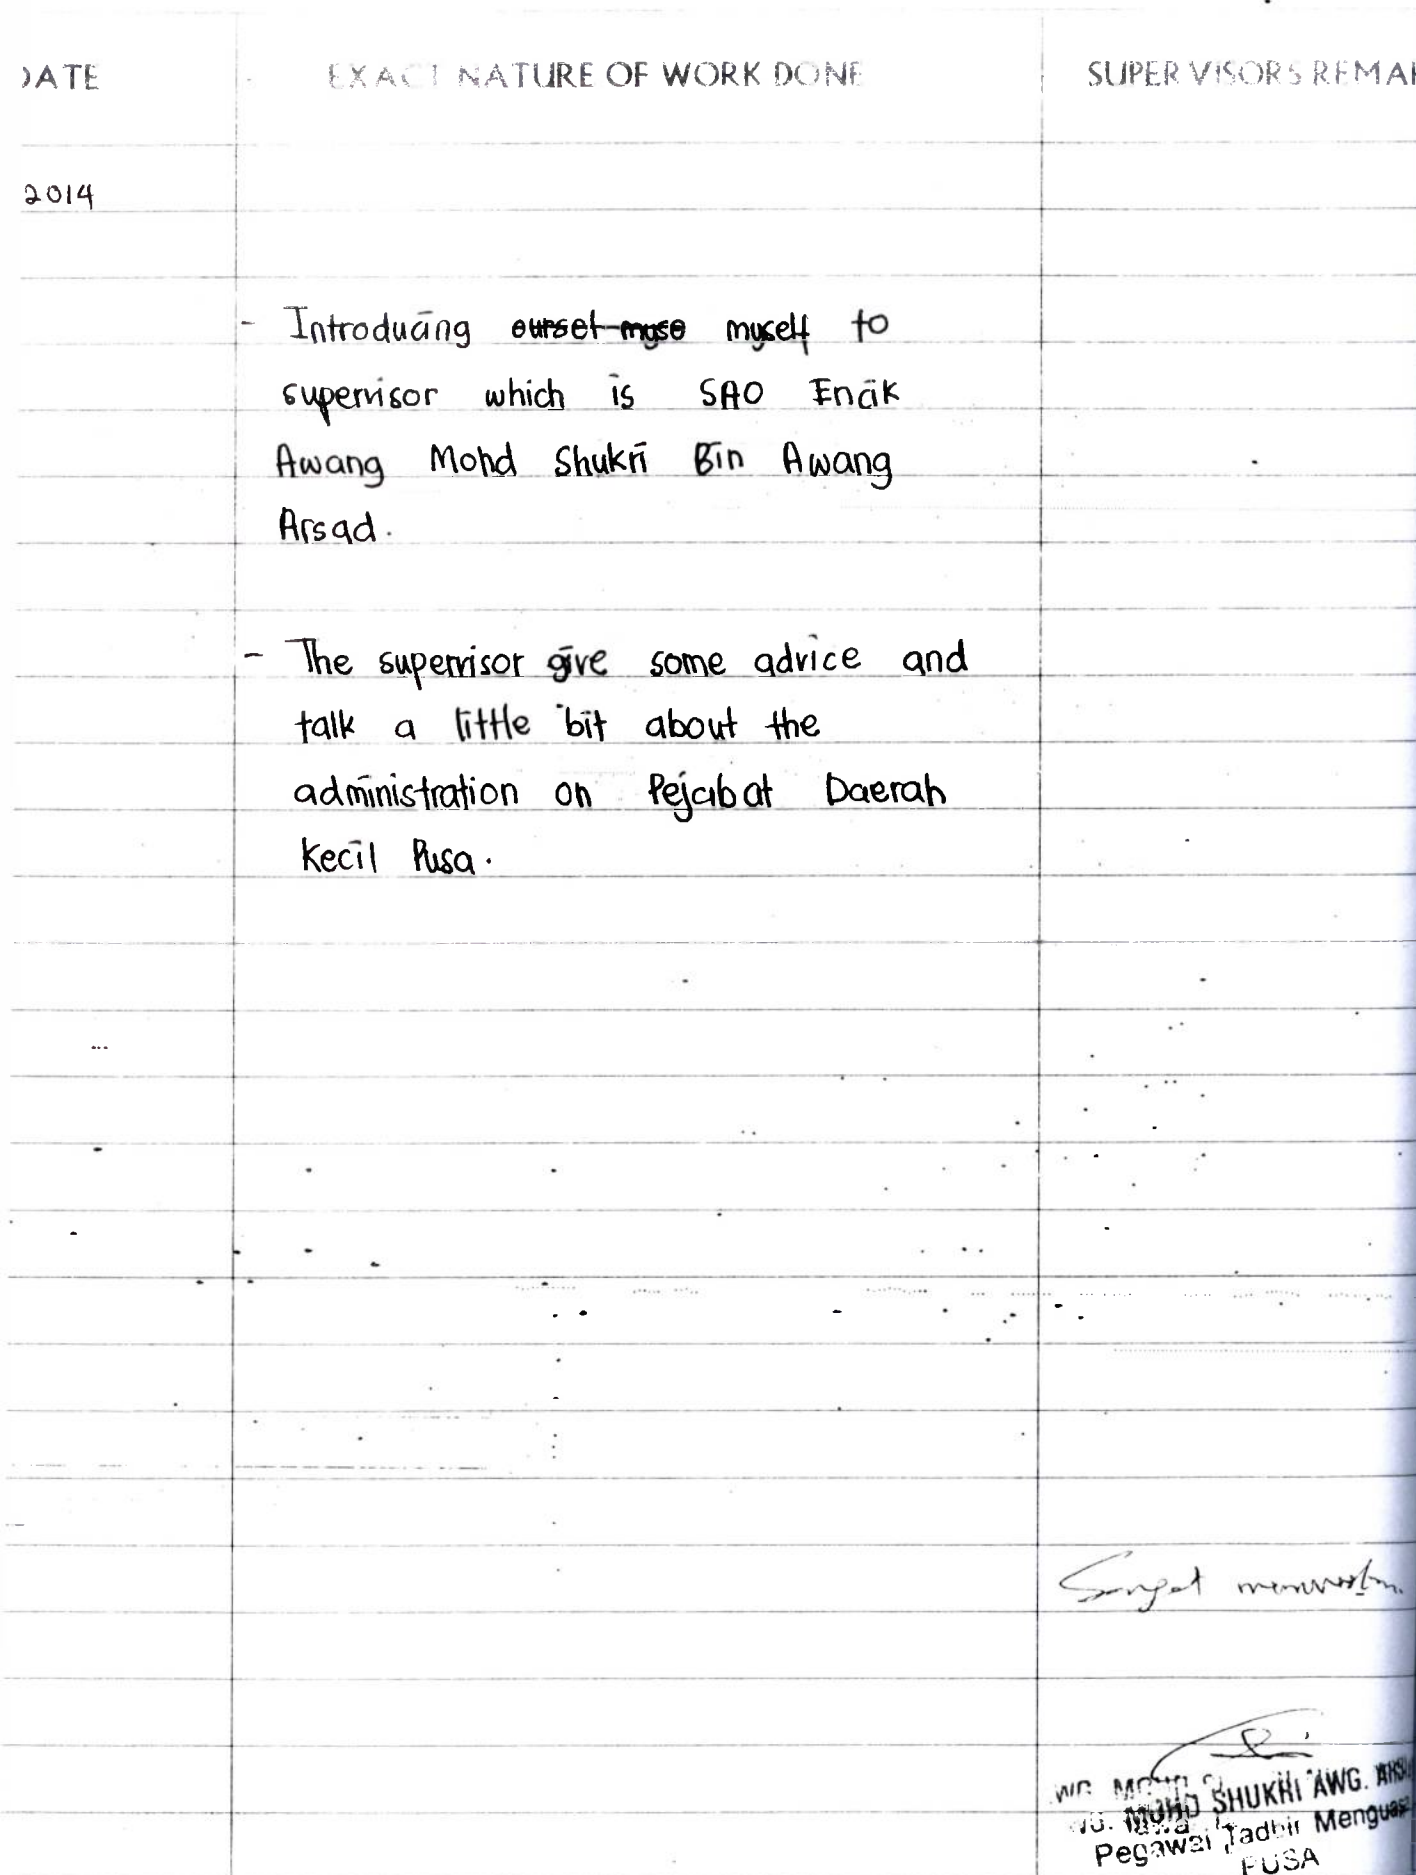 DATE EXACT NATURE OF WORK DONE SUPERVISORS REMAR
2014
- Introducing ourset myse myself to
supervisor which is SAO Encik
Awang Mohd Shukri Bin Awang
Arsad.
- The supervisor give some advice and
talk a little bit about the
administration on Pejabat Daerah
Kecil Pusa.
Sangat
MOHD SHUKRI AWG.
Pegawai Tadbir
PUSA